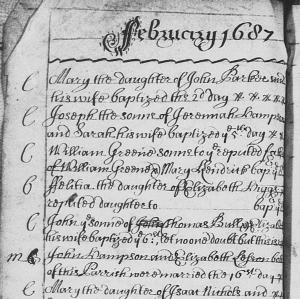 February 1687
C Mary the daughter of John Barkee and
his wife baptized the 2d day
C Joseph the sonne of Jeremiah Lampson
and Sarah his wife baptized ye 5th day
C William Greene sonne to ye reputed
of William Greene & Mary Kendrick bap
b ffelitia the daughter of Elizabeth
reputed daughter to bap ye
C John ye sonne of Thomas Bull
his wife baptized ye let noone doubt but this
m John Lampson and Elizabeth
of this Parrish were married the 16th day
C Mary the daughter of Isaac Nichols and